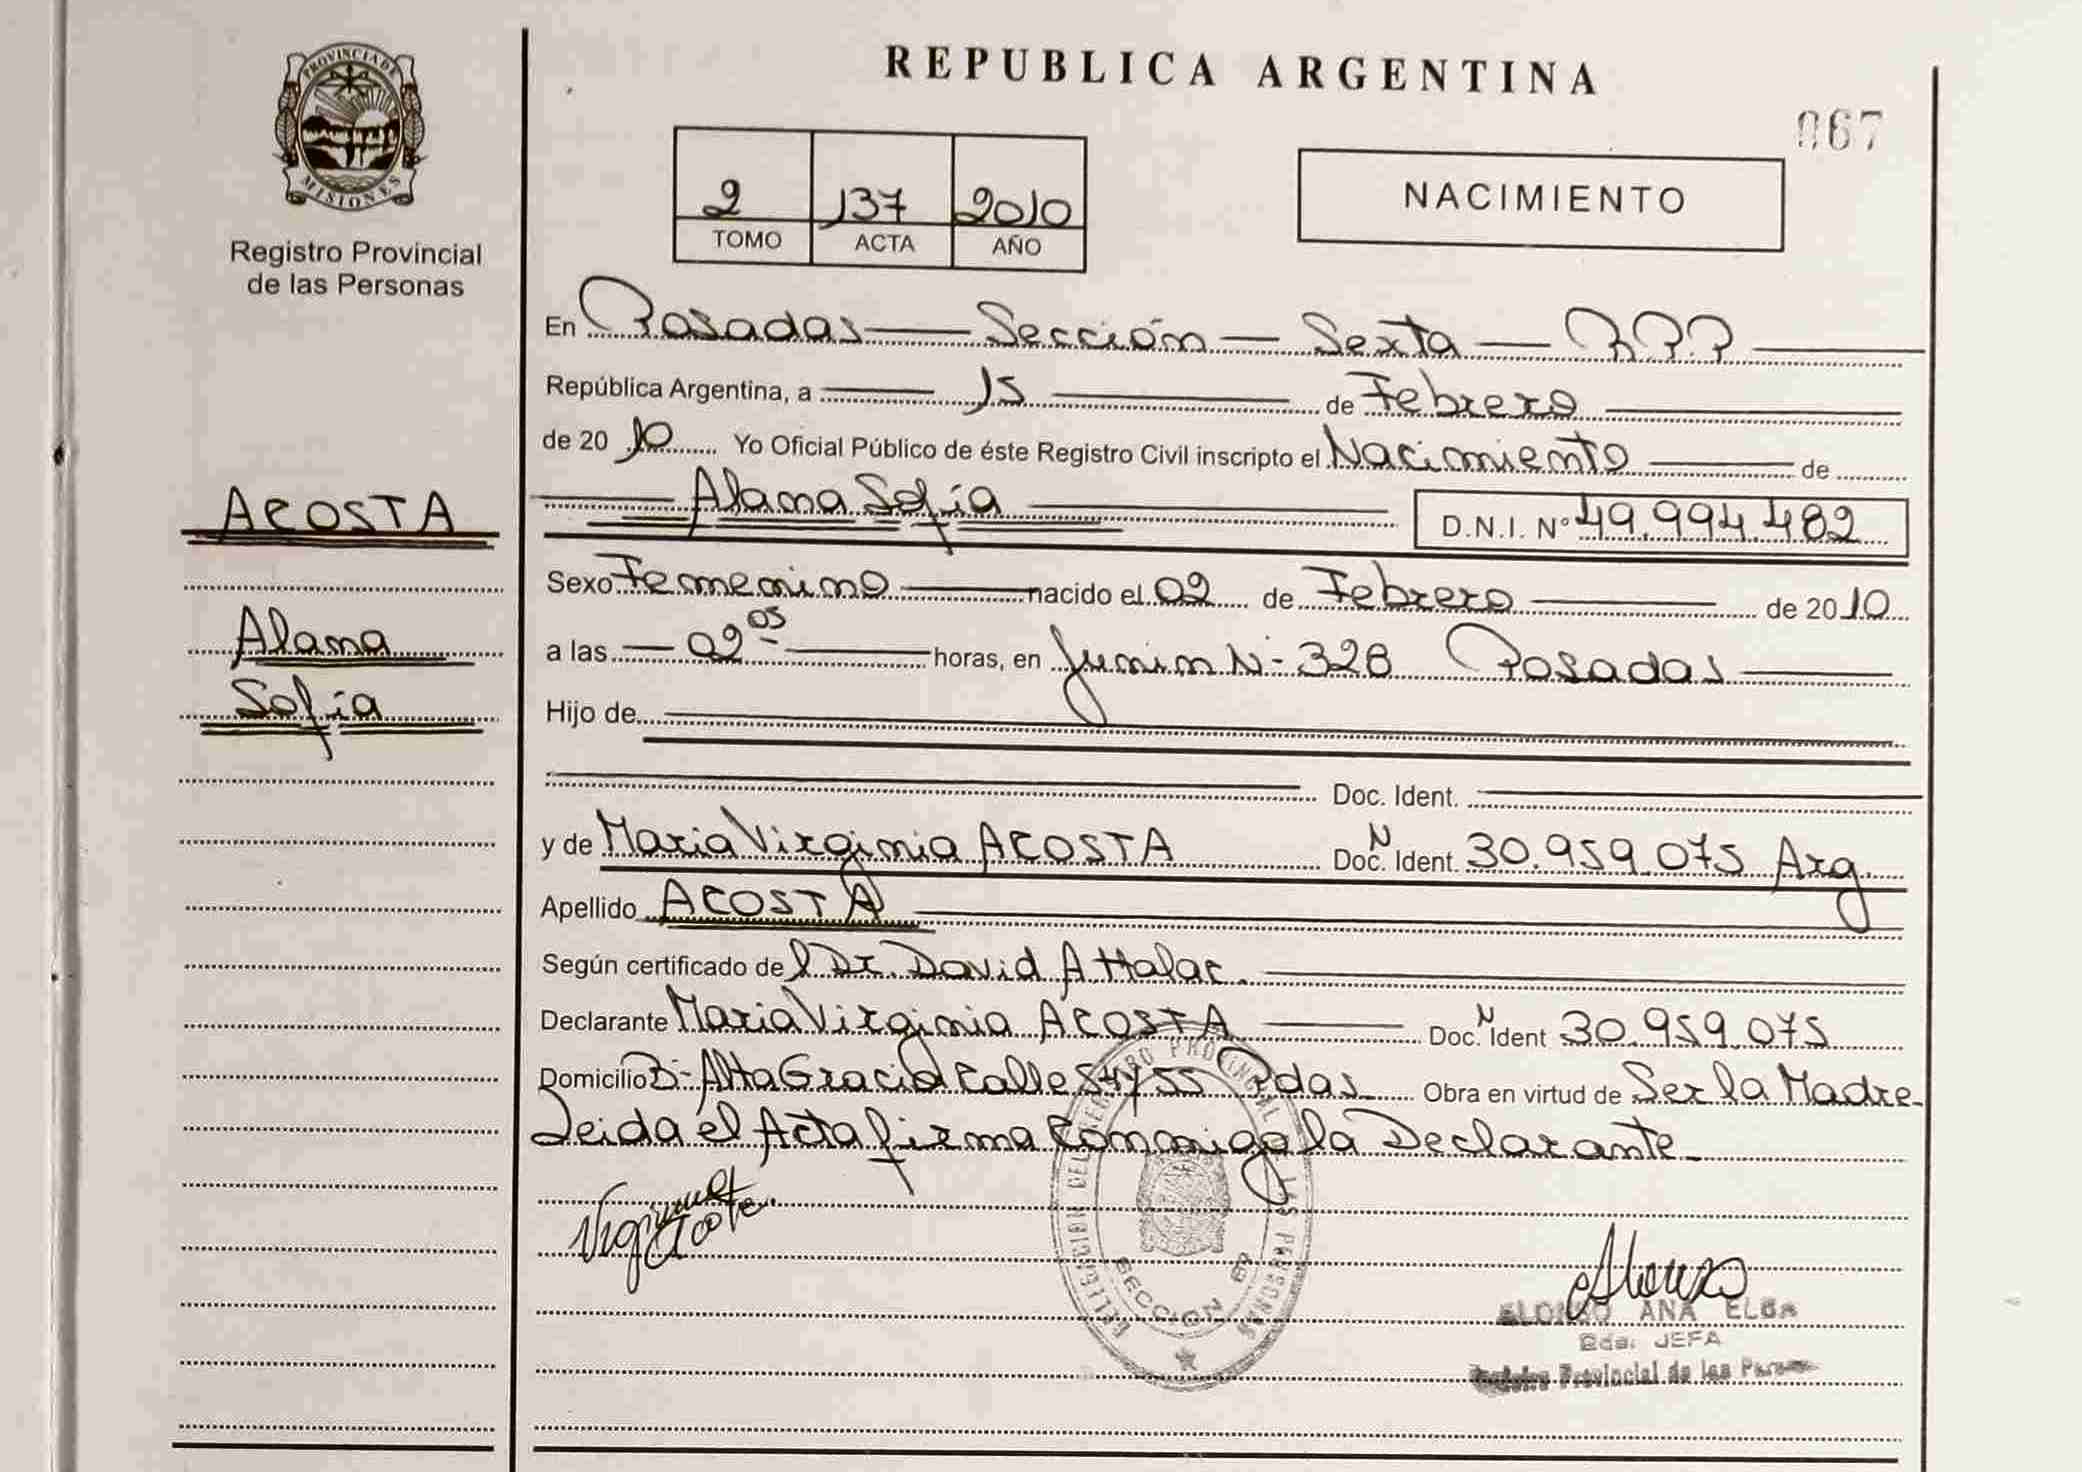 PROVINCIA DE
MISIONES
Registro Provincial
de las Personas
REPUBLICA ARGENTINA
067
2 137 2010
TOMO ACTA AÑO
NACIMIENTO
En Posadas — Sección — Sexta — R.P.P.
República Argentina, a 15 de Febrero
de 2010 Yo Oficial Público de éste Registro Civil inscripto el Nacimiento de
Alama Sofía D.N.I. Nº 49.994.482
ACOSTA
Alama
Sofía
Sexo Femenino nacido el 02 de Febrero de 2010
a las 02 05 horas, en Junin N- 328 Posadas
Hijo de
Doc. Ident.
y de Maria Virginia ACOSTA Doc. N Ident. 30.959.075 Arg.
Apellido ACOSTA
Según certificado de l Dr. David A.
Declarante Maria Virginia ACOSTA Doc. N Ident 30.959.075
Domicilio B- Alta Gracia Calle Pdas. Obra en virtud de Ser la Madre-
Leida el Acta firma conmigo la Declarante-
DELEGACION DEL REGISTRO PROVINCIAL LAS PERSONAS
SECCION 6ª
ALONSO ANA ELBA
JEFA
Registro Provincial de las Personas